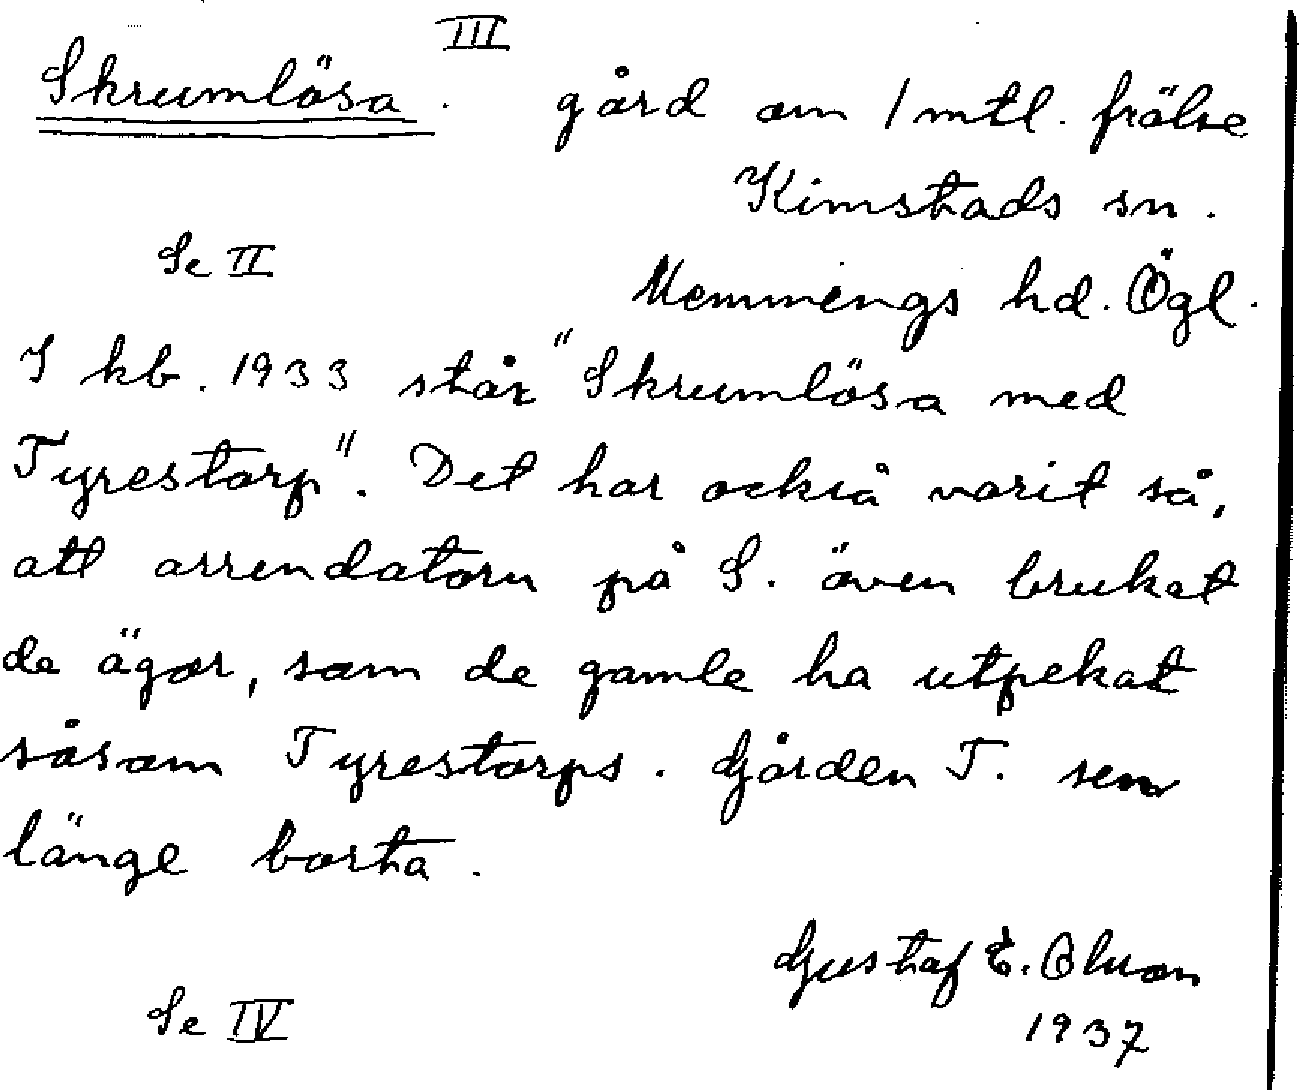 III
Skrumlösa. gård om 1 mtl. frälse
Kimstads sn.
Se II
Memmings hd. Ögl.
I kb. 1933 står "Skrumlösa med
Tyrestorp". Det har också varit så,
att arrendatorn på S. även brukat
de ägor, som de gamle ha utpekat
såsom Tyrestorps. Gården T. sen
länge borta.
Gustaf E. Olsson
1937
Se IV